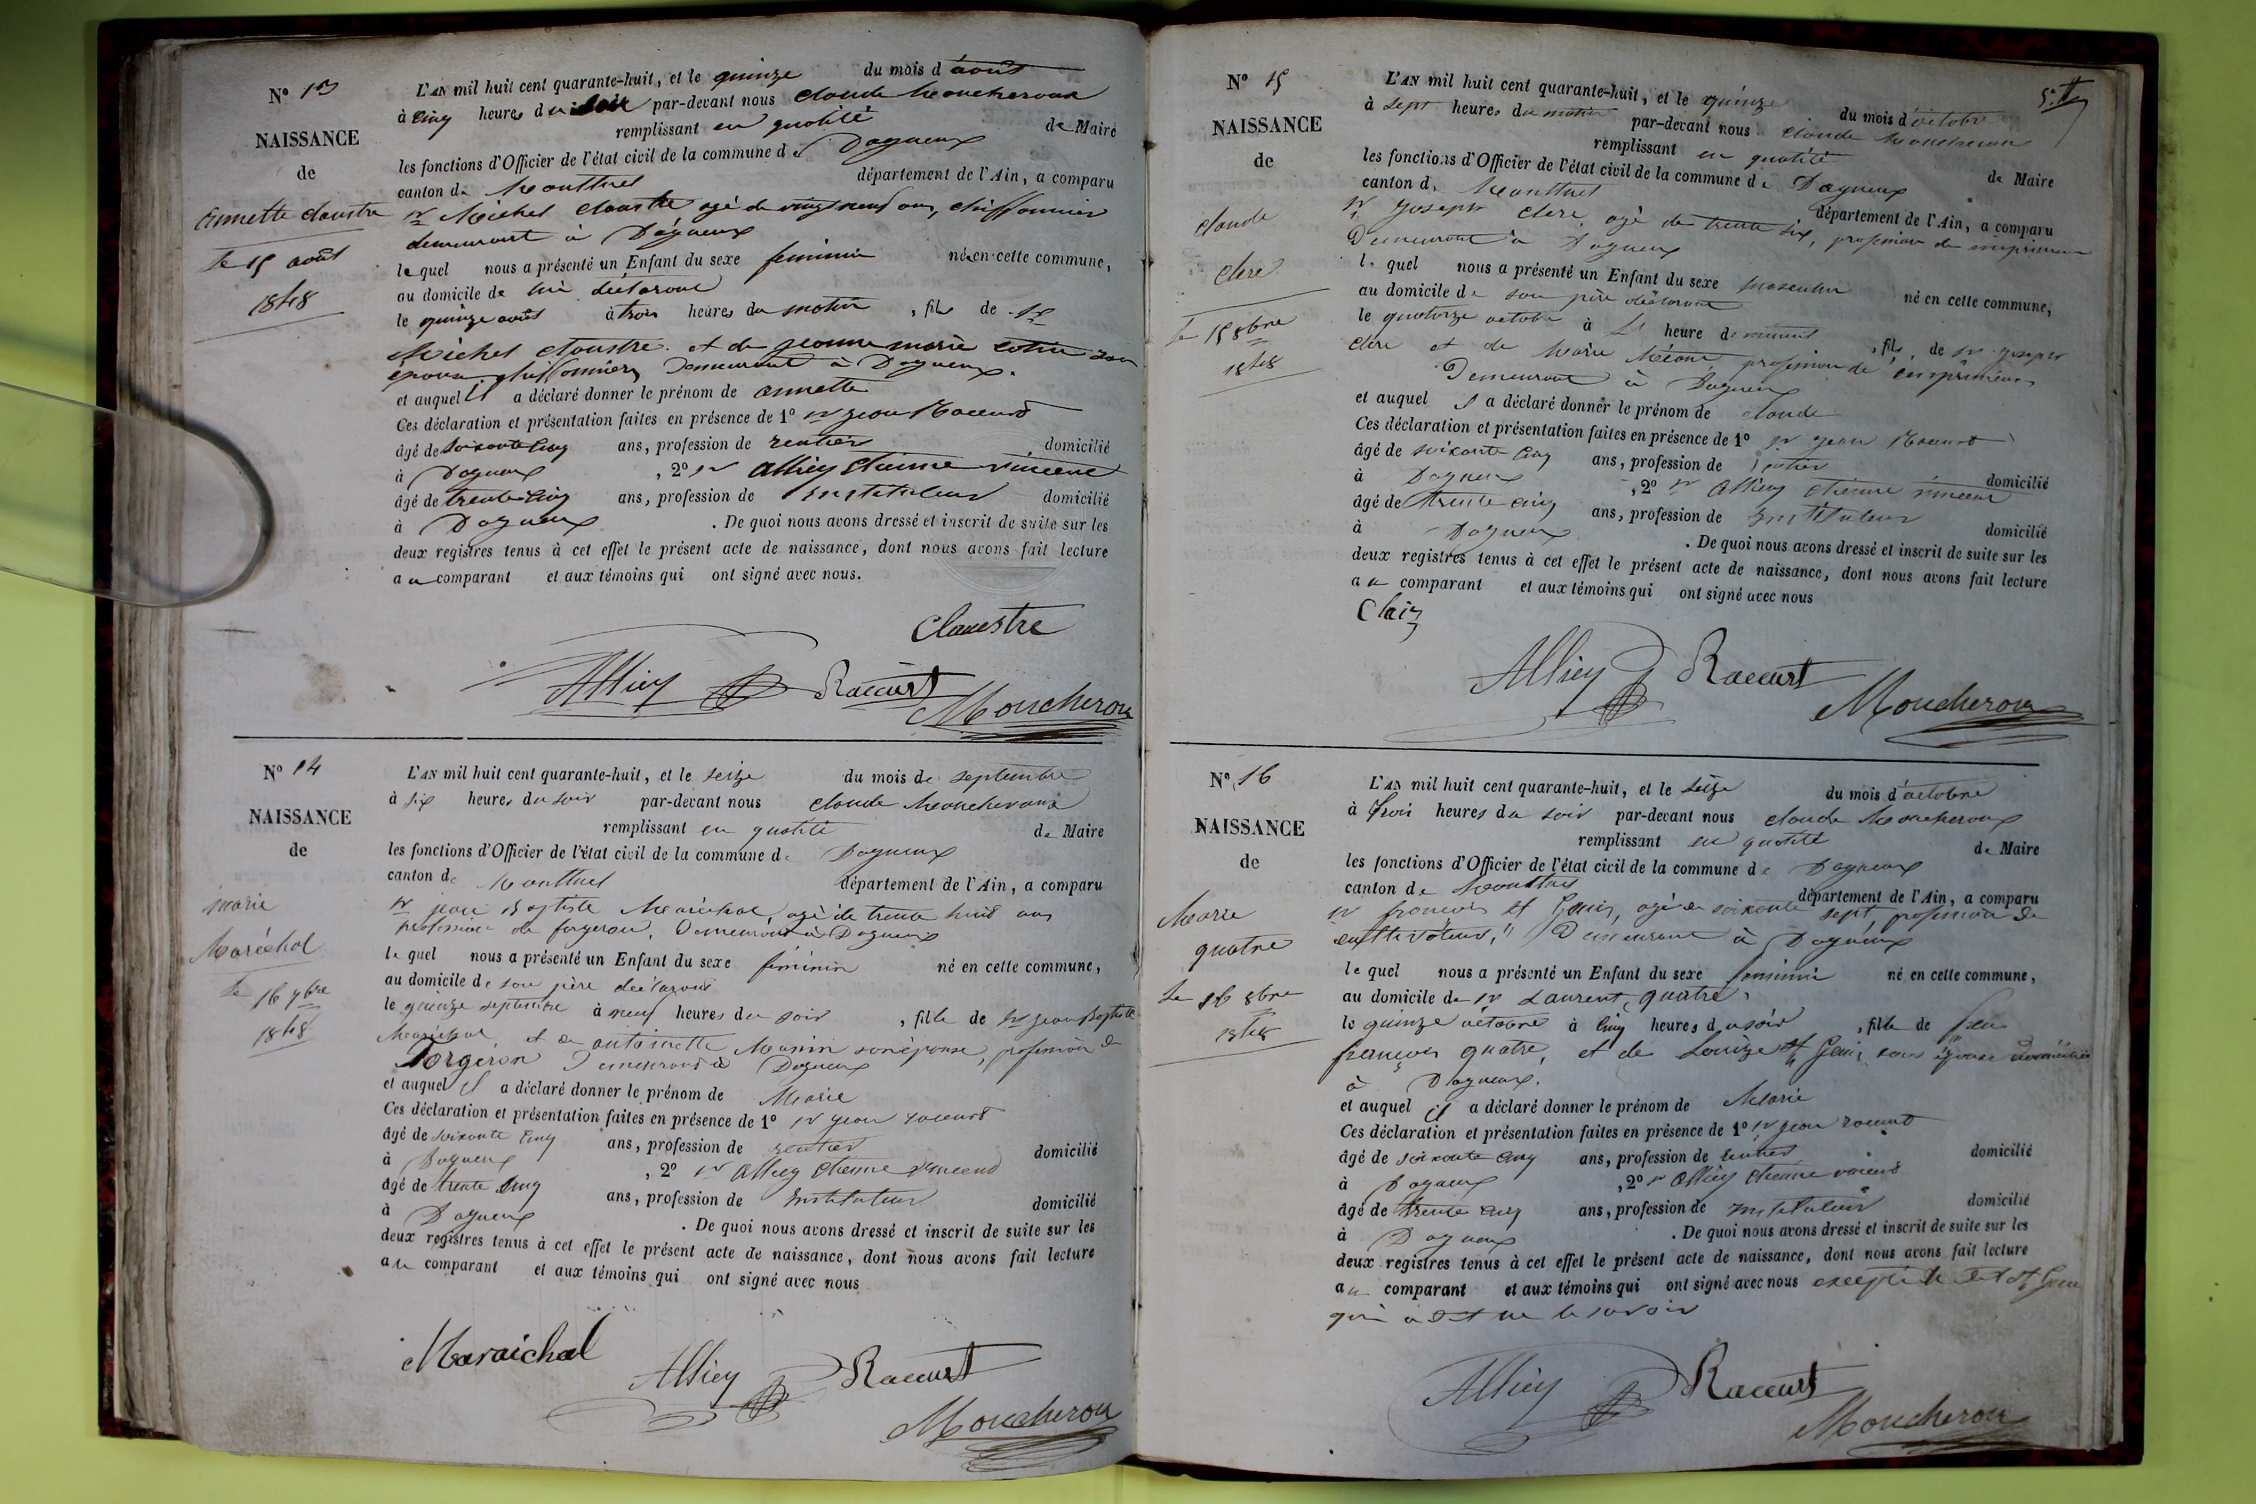 N° 13
NAISSANCE
de
annette claustre
Le 15 août
1848
L'AN mil huit cent quarante-huit, et le quinze du mois d'août
à cinq heures du soir par-devant nous claude Moucheroux
remplissant en qualité de Maire
les fonctions d'Officier de l'état civil de la commune de Dagneux
canton de Montluel département de l'Ain, a comparu
sr Michel claustre agé de vingt neuf ans, chiffonnier
demeurant à Dagneux
lequel nous a présenté un Enfant du sexe féminin né en cette commune,
au domicile de lui déclarant
le quinze août à trois heures du matin, fille de sr
Michel claustre et de jeanne marie son
épouse chiffonniers Demeurant à Dagneux.
et auquel il a déclaré donner le prénom de annette
Ces déclaration et présentation faites en présence de 1° sr jean Raccurt
âgé de soixante cinq ans, profession de rentier domicilié
à Dagneux, 2° sr alliey Etienne vincent
âgé de trente cinq ans, profession de Instituteur domicilié
à Dagneux. De quoi nous avons dressé et inscrit de suite sur les
deux registres tenus à cet effet le présent acte de naissance, dont nous avons fait lecture
au comparant et aux témoins qui ont signé avec nous.
Clauestre
Alliey Raccurt Moucheroux
N° 14
NAISSANCE
de
marie
Maréchal
Le 16 7bre
1848
L'AN mil huit cent quarante-huit, et le seize du mois de septembre
à six heures du soir par-devant nous claude Moucheroux
remplissant en qualité de Maire
les fonctions d'Officier de l'état civil de la commune de Dagneux
canton de Montluel département de l'Ain, a comparu
sr jean Baptiste Maréchal, agé de trente huit ans
profession de forgeron, Demeurant à Dagneux
lequel nous a présenté un Enfant du sexe féminin né en cette commune,
au domicile de son père déclarant
le quinze septembre à neuf heures du soir, fille de sr jean Baptiste
Maréchal et de antoinette Meunin son épouse, profession de
Forgeron Demeurant à Dagneux
et auquel il a déclaré donner le prénom de Marie
Ces déclaration et présentation faites en présence de 1° sr jean raccurt
âgé de soixante cinq ans, profession de rentier domicilié
à Dagneux, 2° sr alliey Etienne vincent
âgé de trente cinq ans, profession de Instituteur domicilié
à Dagneux. De quoi nous avons dressé et inscrit de suite sur les
deux registres tenus à cet effet le présent acte de naissance, dont nous avons fait lecture
au comparant et aux témoins qui ont signé avec nous
Maraichal
Alliey Raccurt
Moucheroux
N° 15
NAISSANCE
de
claude
clere
Le 15 8bre
1848
L'AN mil huit cent quarante-huit, et le quinze du mois d'octobre
à sept heures du matin par-devant nous claude Moucheroux
remplissant en qualité de Maire
les fonctions d'Officier de l'état civil de la commune de Dagneux
canton de Montluel département de l'Ain, a comparu
sr joseph clere agé de trente six, profession de
Demeurant à Dagneux
lequel nous a présenté un Enfant du sexe masculin né en cette commune,
au domicile de son père déclarant
le quatorze octobre à heure de minuit, fils de sr joseph
clere et de Marie profession de
Demeurant à Dagneux
et auquel il a déclaré donner le prénom de claude
Ces déclaration et présentation faites en présence de 1° sr jean Raccurt
âgé de soixante cinq ans, profession de rentier domicilié
à Dagneux, 2° sr alliey etienne vincent
âgé de trente cinq ans, profession de Instituteur domicilié
à Dagneux. De quoi nous avons dressé et inscrit de suite sur les
deux registres tenus à cet effet le présent acte de naissance, dont nous avons fait lecture
au comparant et aux témoins qui ont signé avec nous
Clair
Alliey Raccurt
Moucheroux
N° 16
NAISSANCE
de
Marie
quatre
Le 16 8bre
1848
L'AN mil huit cent quarante-huit, et le seize du mois d'octobre
à trois heures du soir par-devant nous claude Moucheroux
remplissant en qualité de Maire
les fonctions d'Officier de l'état civil de la commune de Dagneux
canton de Montluel département de l'Ain, a comparu
sr françois st Genis, agé de soixante sept, profession de
cultivateur, Demeurant à Dagneux
lequel nous a présenté un Enfant du sexe feminin né en cette commune,
au domicile de sr Laurent quatre,
le quinze octobre à cinq heures du soir, fille de feu
françois quatre, et de Louize st Genis son épouse domiciliée
à Dagneux.
et auquel il a déclaré donner le prénom de Marie
Ces déclaration et présentation faites en présence de 1° sr jean raccurt
âgé de soixante cinq ans, profession de rentier domicilié
à Dagneux, 2° sr alliey Etienne vincent
âgé de trente cinq ans, profession de Instituteur domicilié
à Dagneux. De quoi nous avons dressé et inscrit de suite sur les
deux registres tenus à cet effet le présent acte de naissance, dont nous avons fait lecture
au comparant et aux témoins qui ont signé avec nous excepté le dit st Genis
qui a dit ne le savoir
Alliey Raccurt
Moucheroux